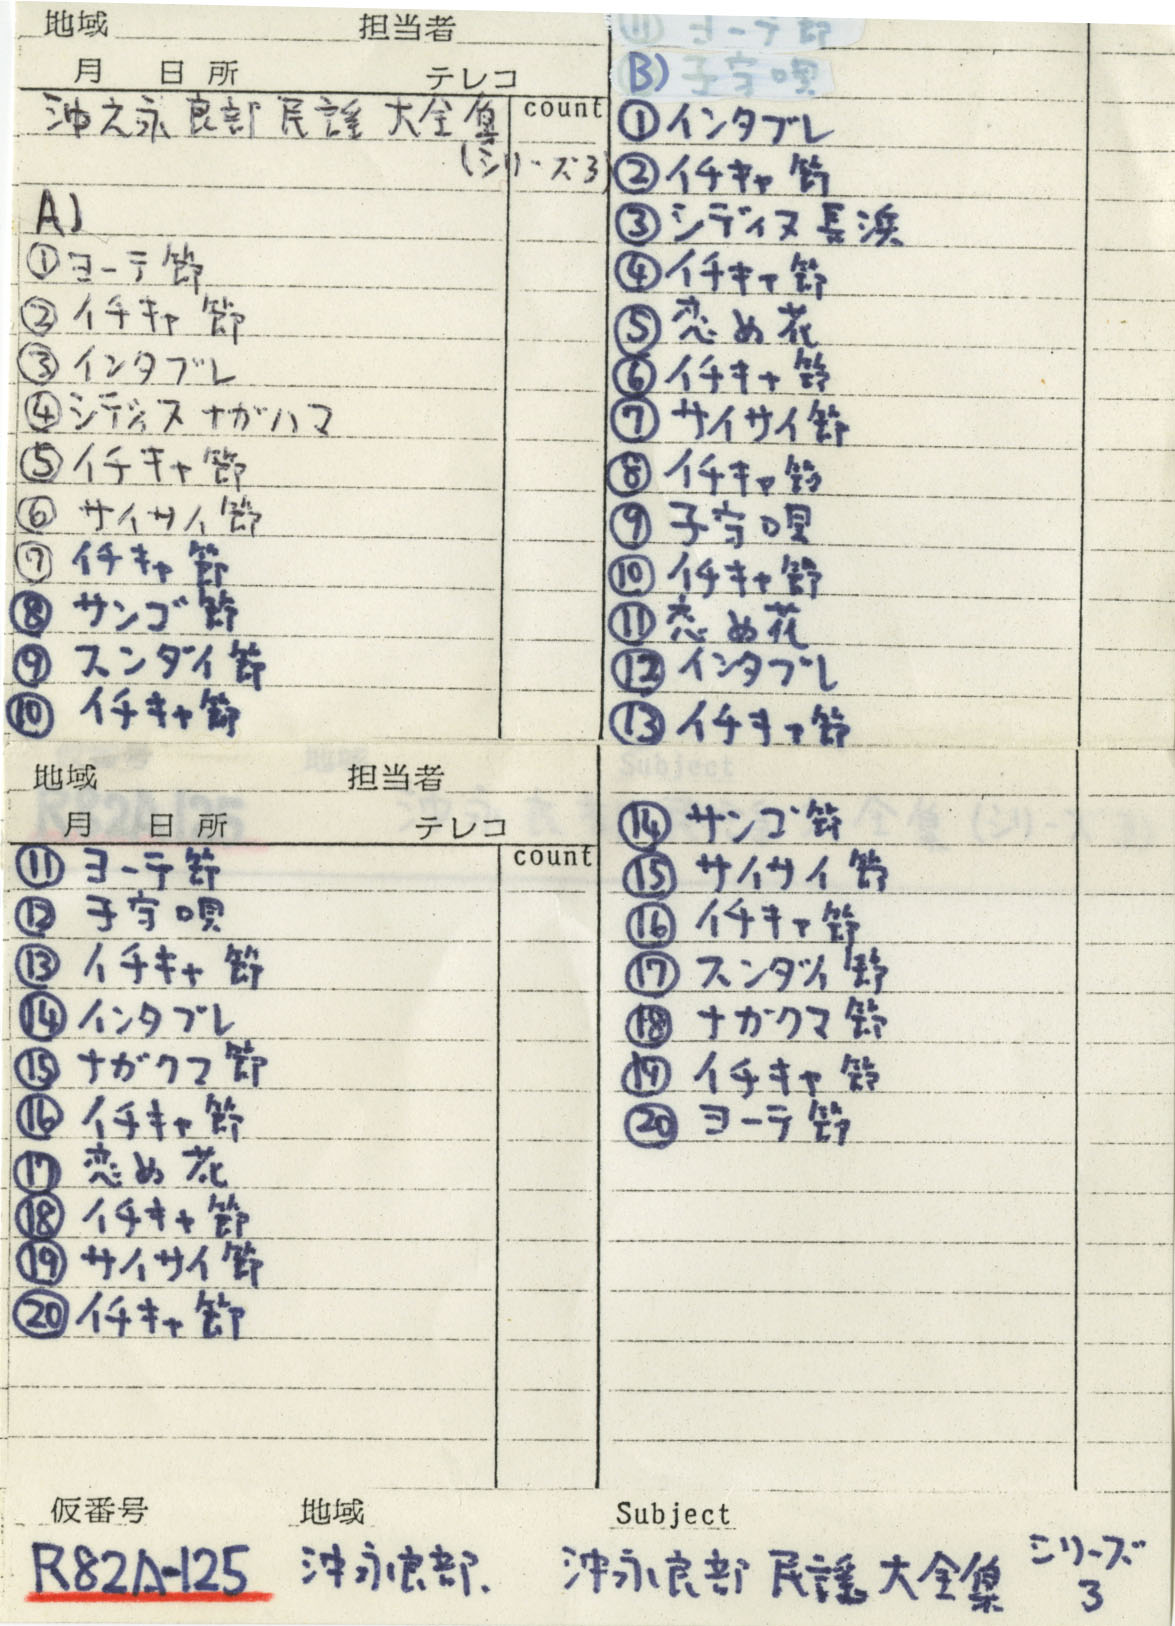 地域 担当者
月 日 所 テレコ
count
沖之永良部民謡大全集
(シリーズ3)
A)
①ヨーテ節
②イチキャ節
③インタブレ
④シディヌナガハマ
⑤イチキャ節
⑥サイサイ節
⑦イチキャ節
⑧サンゴ節
⑨スンダイ節
⑩イチキャ節
⑪ヨーテ節
B) 子守唄
①インタブレ
②イチキャ節
③シディヌ長浜
④イチキャ節
⑤恋ぬ花
⑥イチキャ節
⑦サイサイ節
⑧イチキャ節
⑨子守唄
⑩イチキャ節
⑪恋ぬ花
⑫インタブレ
⑬イチキャ節
地域 担当者
月 日 所 テレコ
count
⑪ヨーテ節
⑫子守唄
⑬イチキャ節
⑭インタブレ
⑮ナガクマ節
⑯イチキャ節
⑰恋ぬ花
⑱イチキャ節
⑲サイサイ節
⑳イチキャ節
⑭サンゴ節
⑮サイサイ節
⑯イチキャ節
⑰スンダイ節
⑱ナガクマ節
⑲イチキャ節
⑳ヨーテ節
仮番号 地域 Subject
R82A-125 沖永良部、 沖永良部民謡大全集 シリーズ3